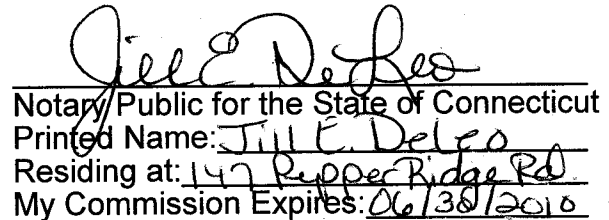 Jill E. DeLeo
Notary Public for the State of Connecticut
Printed Name: Jill E. DeLeo
Residing at: 147 Pepper Ridge Rd
My Commission Expires: 06/30/2010